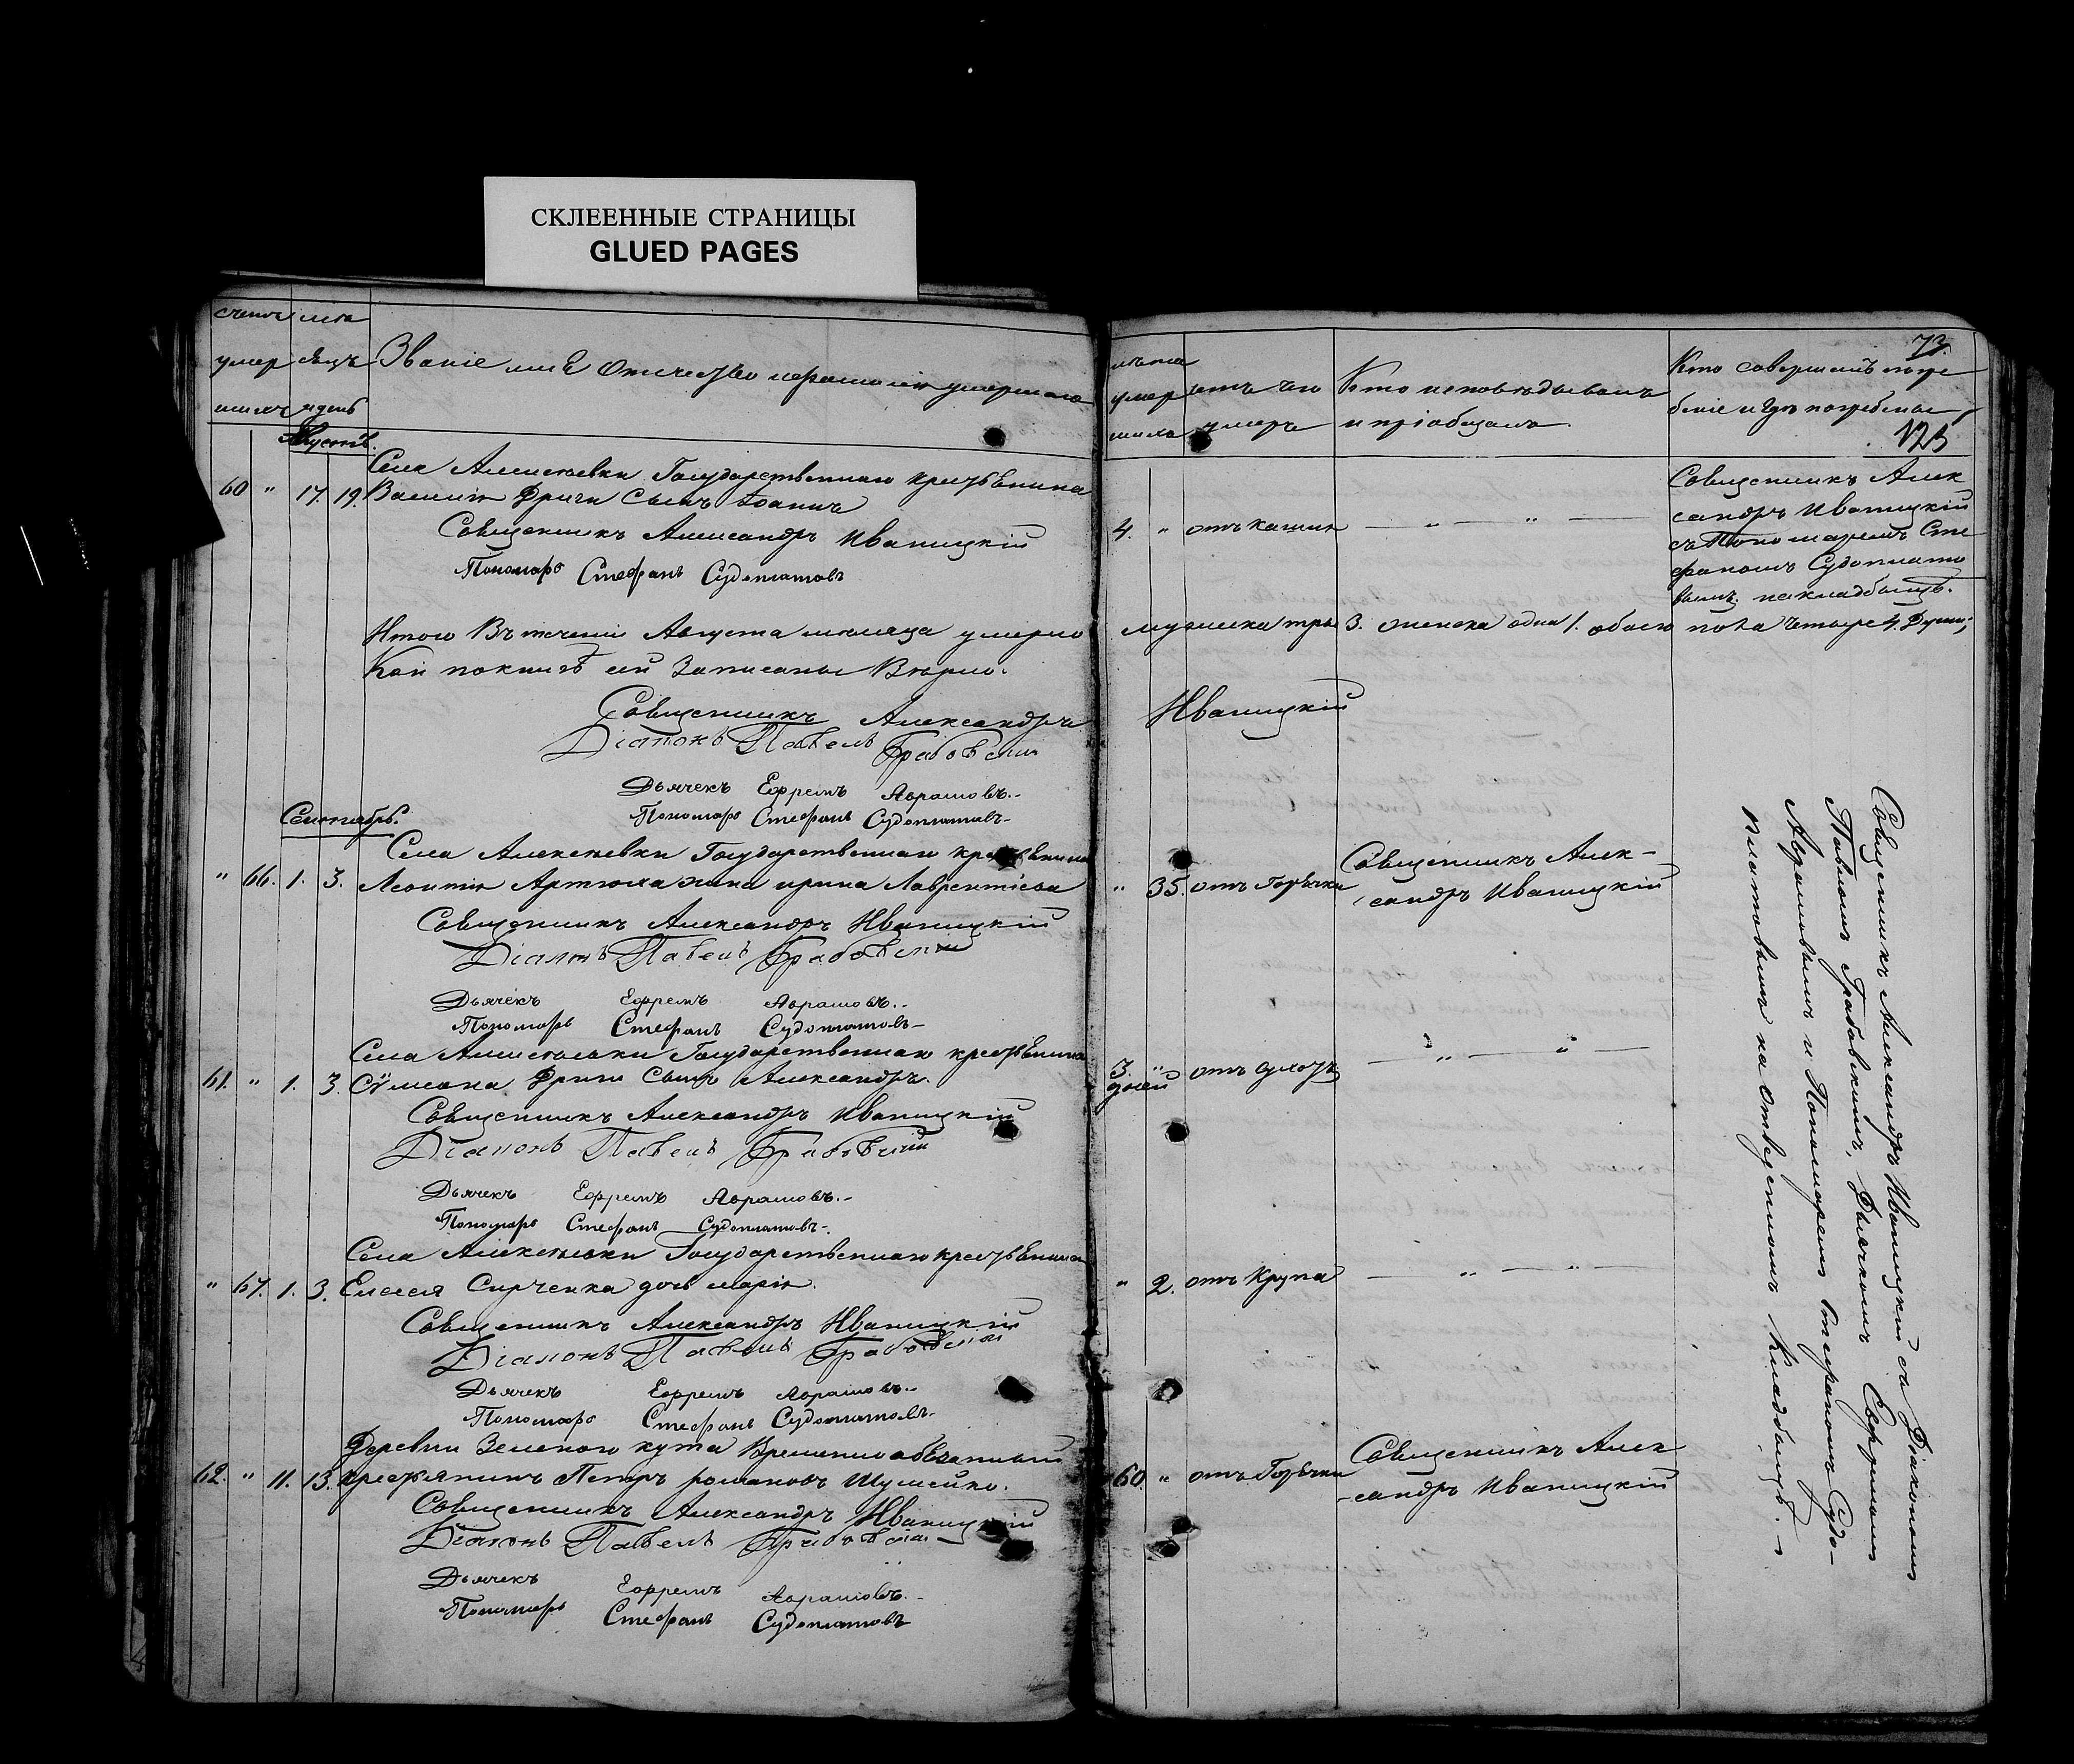 СКЛЕЕННЫЕ СТРАНИЦЫ
GLUED PAGES
счетъ мѣся
умер яцъ Званіе имя Отчество и фамилія умершаго
шихъ и день
Августъ.
Села Алексѣевки Государственнаго крестьянина
60 " 17. 19. Василія Дриги Сынъ Іоаннъ
Священникъ Александръ Иваницкій
Пономарь Стефанъ Судоплатовъ
Итого Въ теченіи Августа месяца умерло
Кои по книгѣ сей Записаны Вѣрно.
Священникъ Александръ
Діаконъ Павелъ Грабовскій
Дьячекъ Ефремъ Аврамовъ.-
Пономарь Стефанъ Судоплатовъ-
Сентябрь.
Села Алексѣевки Государственнаго крестьянина
" 66. 1. 3. Леонтія Артюха жена Ирина Лаврентіева
Священникъ Александръ Иваницкій
Діаконъ Павелъ Грабовскій
Дьячекъ Ефремъ Аврамовъ..
Пономарь Стефанъ Судоплатовъ-
Села Алексѣевки Государственнаго крестьянина
61. " 1. 3. Сѵмеона Дриги Сынъ Александръ.
Священникъ Александръ Иваницкій
Діаконъ Павелъ Грабовскій
Дьячекъ Ефремъ Аврамовъ.-
Пономарь Стефанъ Судоплатовъ-.
Села Алексѣевки Государственнаго крестьянина
" 67. 1. 3. Елисея Сирченка дочь Марія.
Священникъ Александръ Иваницкій
Діаконъ Павелъ Грабовскій
Дьячекъ Ефремъ Аврамовъ.-
Пономарь Стефанъ Судоплатовъ-
Деревни Зеленого кута Временно обязанный
62. " 11. 13. крестьянинъ Петръ романовъ Шумейко.
Священникъ Александръ Иваницкій
Діаконъ Павелъ Грабовскій
Дьячекъ Ефремъ Аврамовъ.-
Пономарь Стефанъ Судоплатовъ
73.
лѣта
умер отъ чего Кто исповѣдывалъ
шихъ умеръ и пріобщалъ.
Кто совершалъ погре
беніе и гдѣ погребены
123
4. " отъ кашля — " — " —
Священникъ Алек
сандръ Иваницкій
съ Пономаремъ Сте
фаномъ Судоплато
вымъ на кладбищѣ.
мужеска три 3. женска одна 1. обоего пола четыре 4. Души;
Иваницкій
" 35. отъ Горячки Священникъ Алек-
сандръ Иваницкій
3. " отъ — " — " —
дней
" 2. отъ Крупа — " — " —
60 " отъ Горячки Священникъ Алек
-сандръ Иваницкій
Священникъ Александръ Иваницкій съ Діакономъ
Павломъ Грабовскимъ, Дьячкомъ Ефремомъ
Аврамовымъ и Пономаремъ Стефаномъ Судо-
платовымъ на отведенномъ Кладбищѣ.-